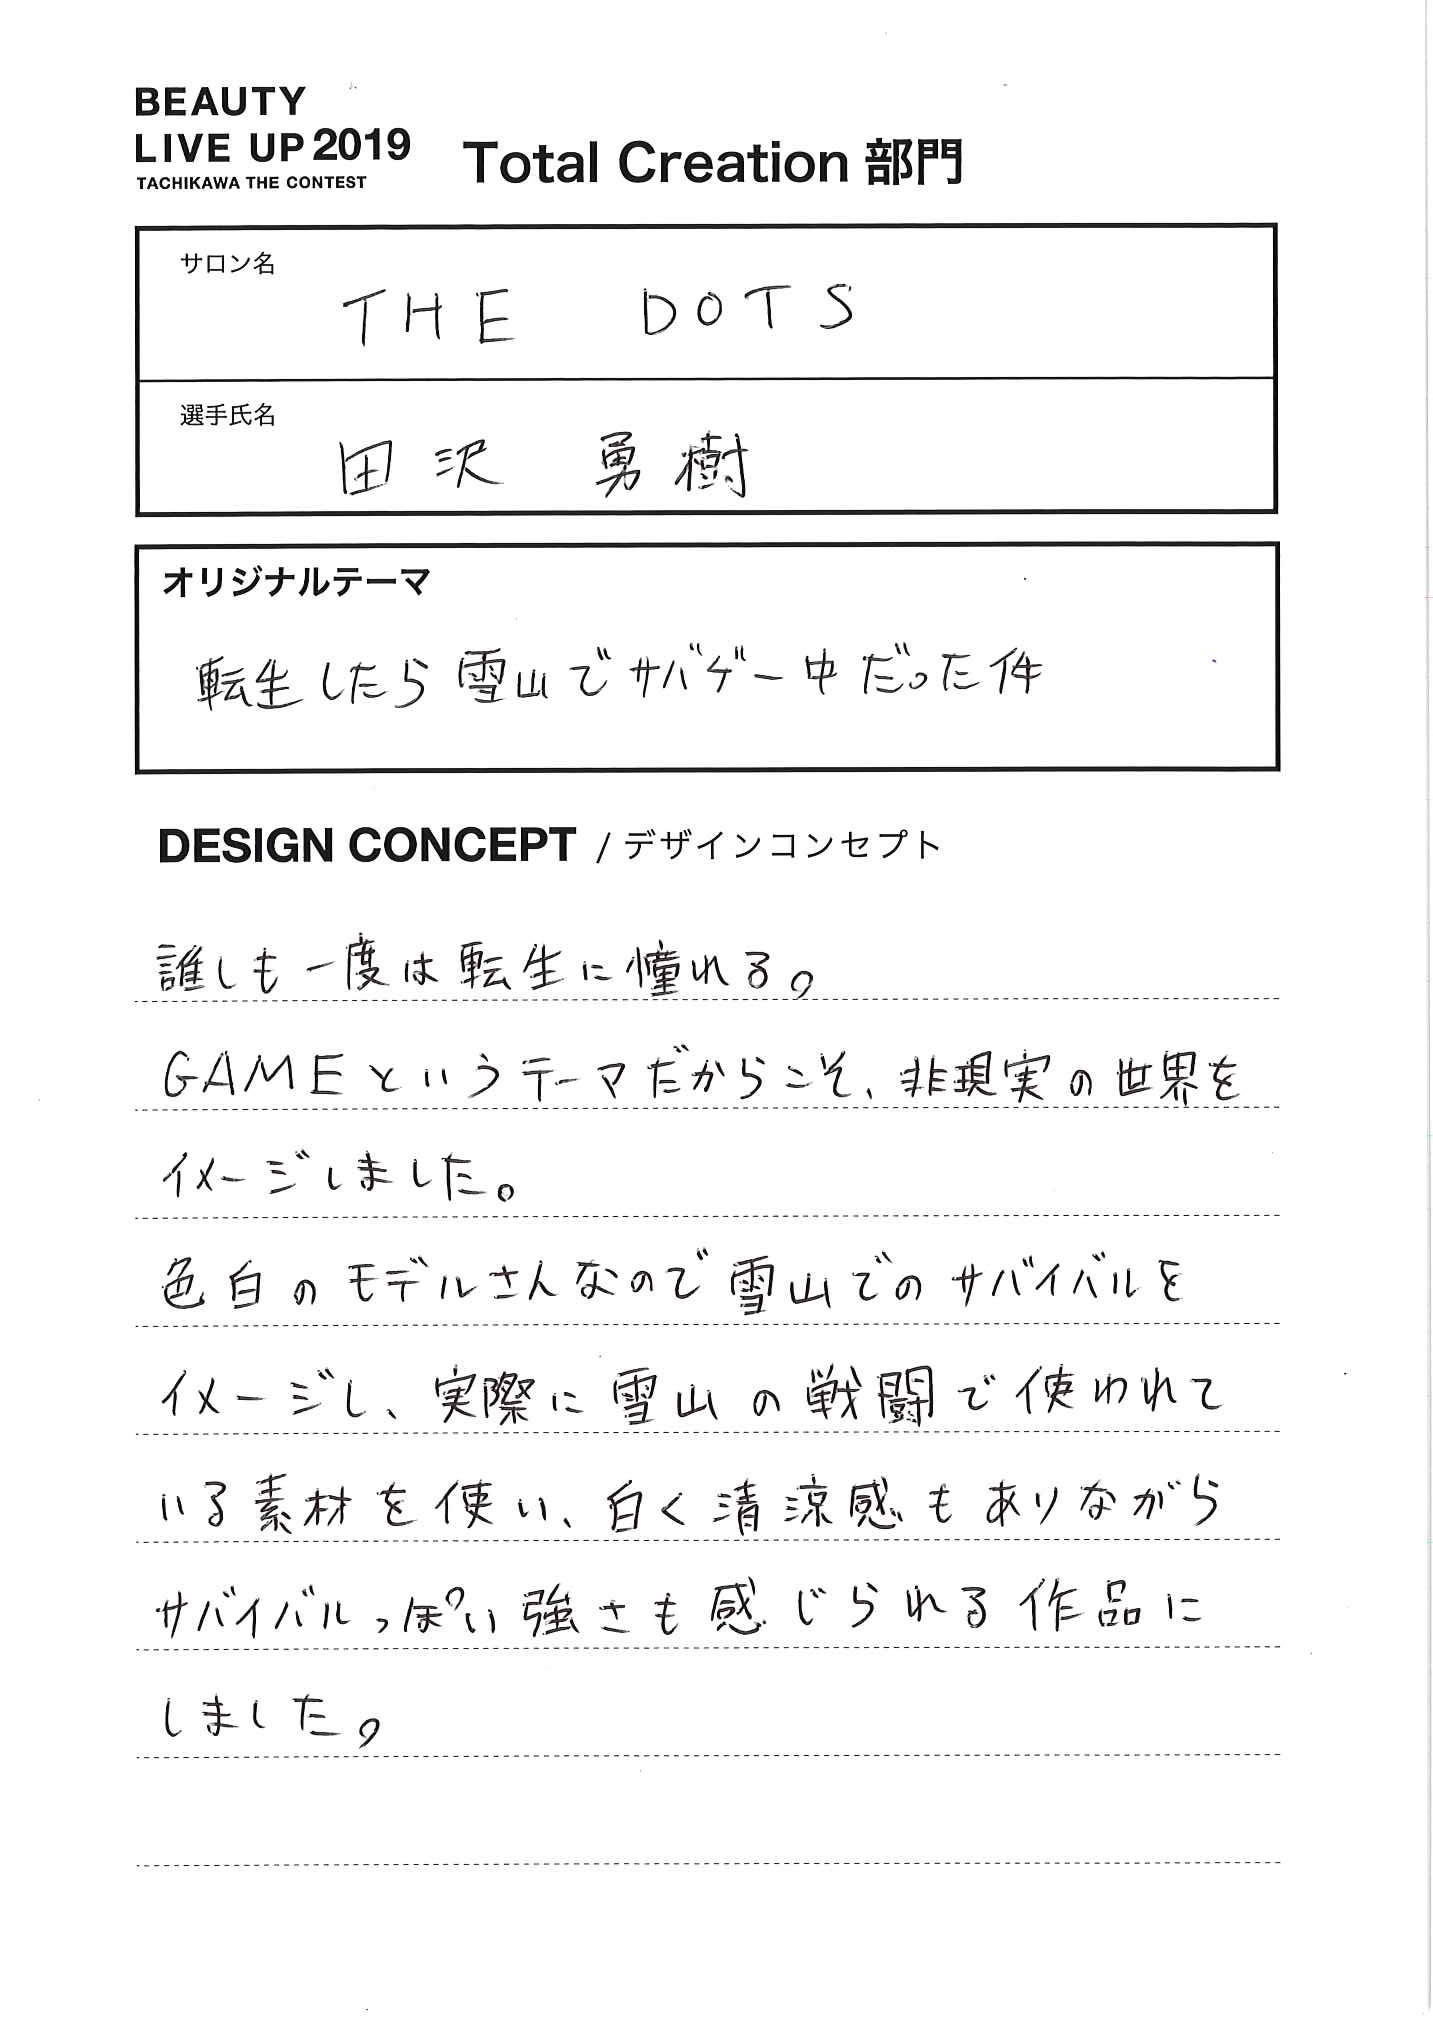 BEAUTY
LIVE UP 2019
TACHIKAWA THE CONTEST
Total Creation 部門
サロン名
THE DOTS
選手氏名
田沢 勇樹
オリジナルテーマ
転生したら雪山でサバゲー中だった件
DESIGN CONCEPT / デザインコンセプト
誰しも一度は転生に憧れる。
GAMEというテーマだからこそ、非現実の世界を
イメージしました。
色白のモデルさんなので雪山でのサバイバルを
イメージし、実際に雪山の戦闘で使われて
いる素材を使い、白く清涼感もありながら
サバイバルっぽい強さも感じられる作品に
しました。